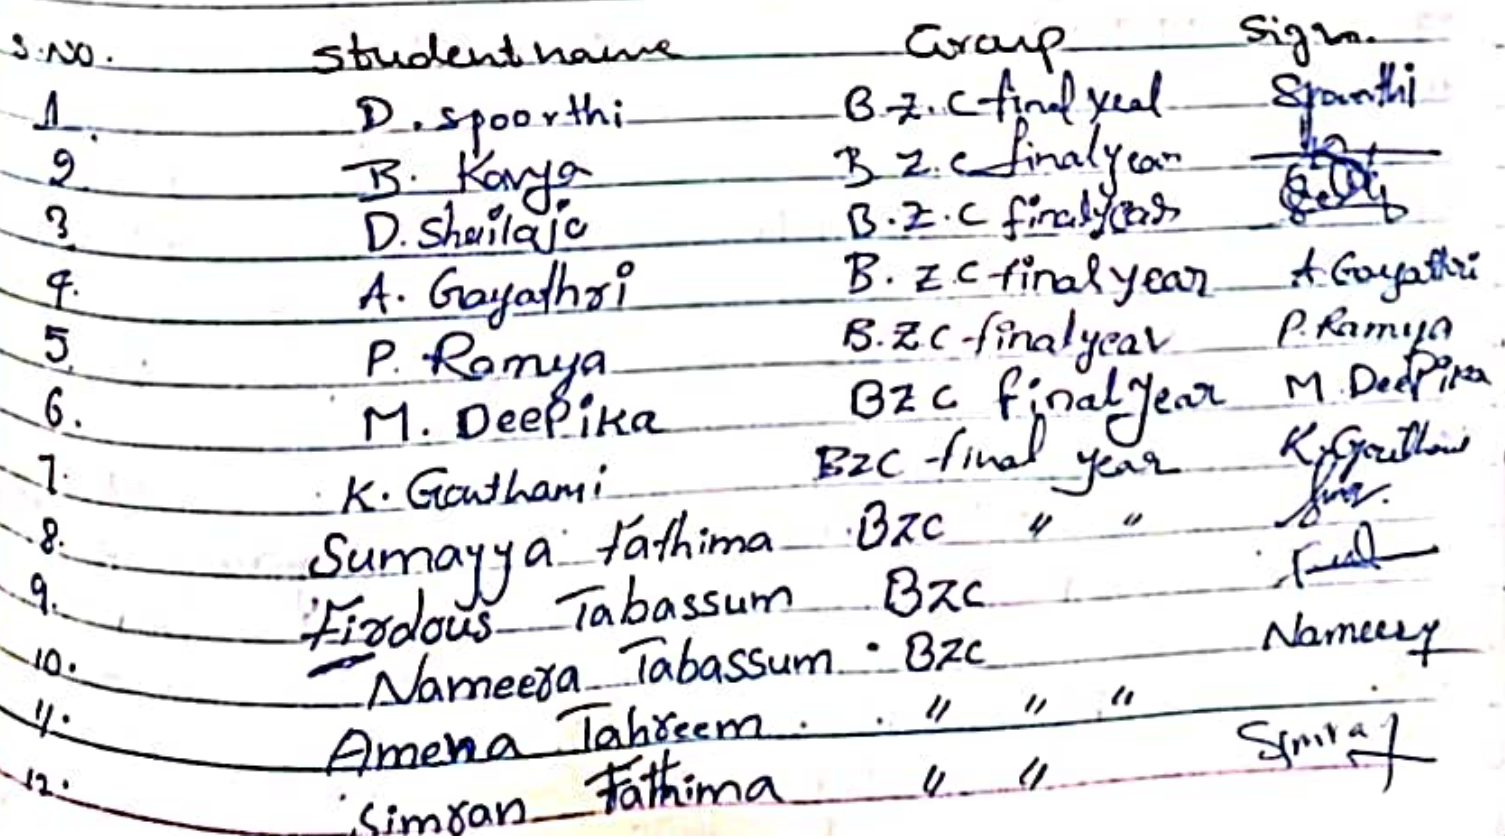 S.NO. Student name Group Sign.
1 D. Spoorthi B.Z.C final year Spoorthi
2 B. Kavya B Z.C final year
3 D. Shailaja B.Z.C final year
4. A. Gayathri B. Z C final year A. Gayathri
5 P. Ramya B.Z C final year P. Ramya
6. M. DeePika BZC final year M. DeePika
7. K. Gouthami BZC final year K. Gouthami
8. Sumayya Fathima BZC " "
9. Firdous Tabassum BZC
10. Nameera Tabassum BZC
11. Amena Tahreem " " "
12. Simran Fathima " "